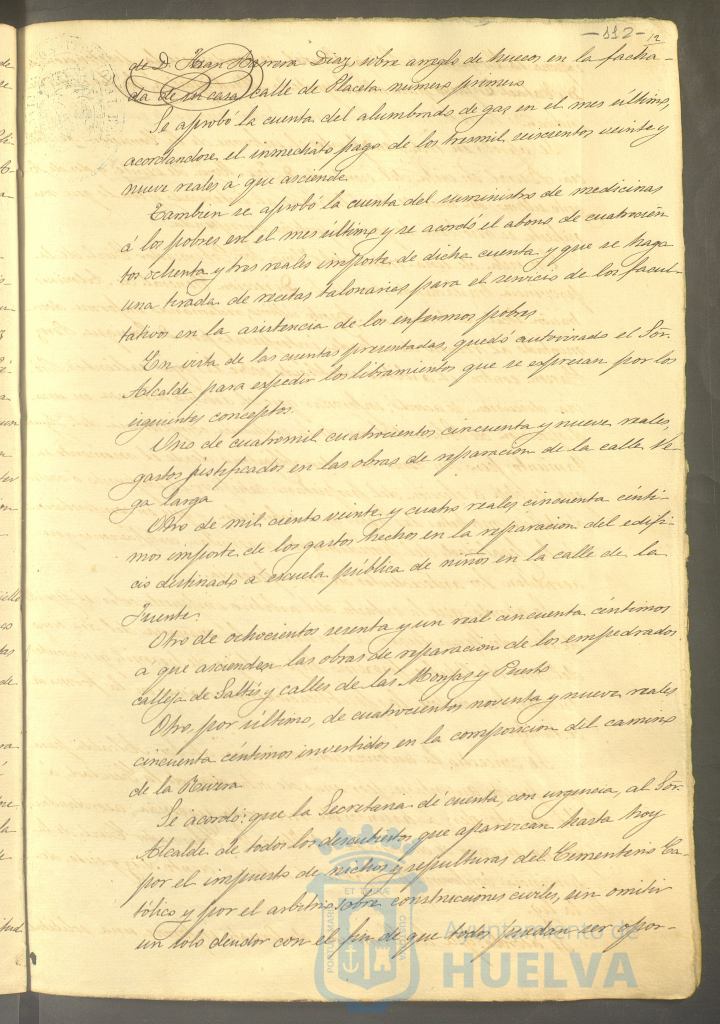 -112-
12
de D. Juan Barrera Diaz, sobre arreglo de huecos en la facha-
da de su casa calle de Placeta numero primero
Se aprobó la cuenta del alumbrado de gas en el mes último,
acordandose el inmediato pago de los tresmil seiscientos veinte y
nueve reales á que asciende.
Tambien se aprobó la cuenta del suministro de medicinas
á los pobres en el mes último y se acordó el abono de cuatrocien
tos ochenta y tres reales importe de dicha cuenta y que se haga
una tirada de recetas talonarias para el servicio de los facul-
tativos en la asistencia de los enfermos pobres.
En vista de las cuentas presentadas, quedó autorizado el Sõr.
Alcalde para expedir los libramientos que se expresan por los
siguientes conceptos.
Uno de cuatromil cuatrocientos cincuenta y nueve reales,
gastos justificados en las obras de reparacion de la calle Ve-
ga larga
Otro de mil ciento veinte y cuatro reales cincuenta cénti-
mos importe de los gastos hechos en la reparacion del edifi-
cio destinado á escuela pública de niños en la calle de la
Fuente.
Otro de ochocientos sesenta y un real cincuenta céntimos
á que ascienden las obras de reparacion de los empedrados
calleja de Saltés y calles de las Monjas y Puerto
Otro, por último, de cuatrocientos noventa y nueve reales
cincuenta céntimos invertidos en la composicion del camino
de la Rivera
Se acordó: que la Secretaria dé cuenta, con urgencia, al Sõr.
Alcalde de todos los descubiertos que aparezcan hasta hoy
por el impuesto de nichos y sepulturas del Cementerio Ca-
tólico y por el arbitrio sobre construcciones civiles, sin omitir
un solo deudor con el fin de que todos puedan ser opor-
Ayuntamiento de
HUELVA